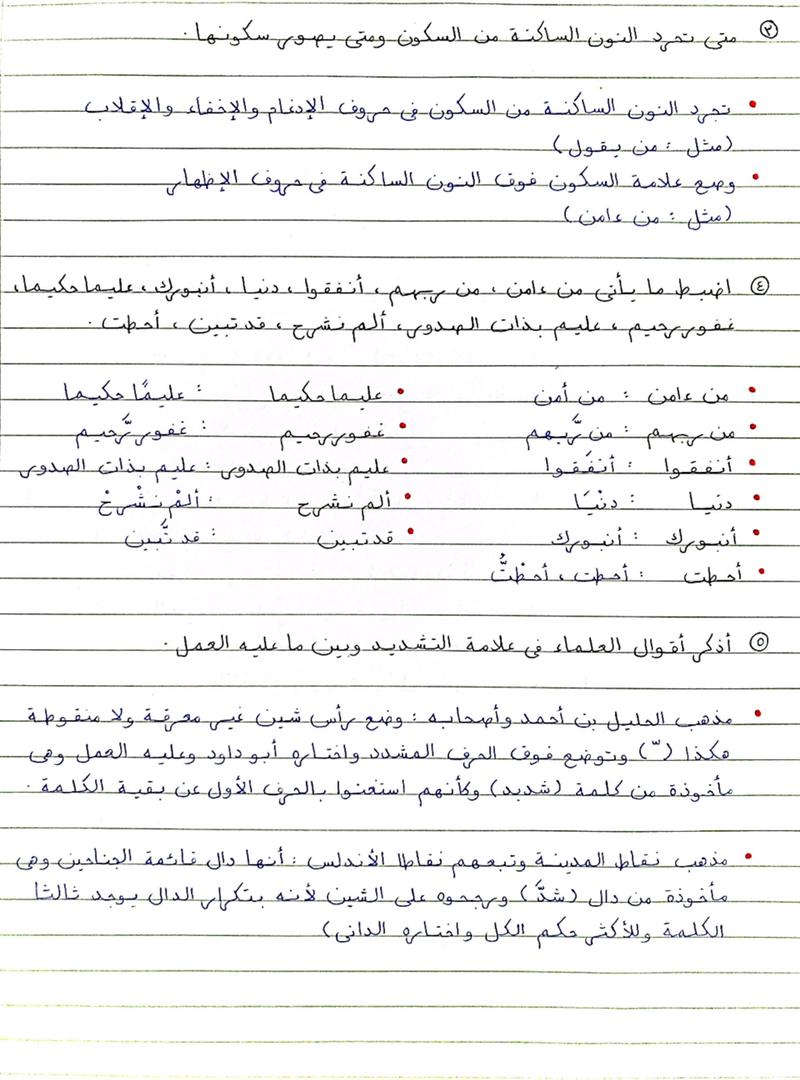 ٣ متى تجرد النون الساكنة من السكون ومتى يصور سكونها.
• تجرد النون الساكنة من السكون في حروف الإدغام والإخفاء والإقلاب
(مثل : من يقول)
• وضع علامة السكون فوق النون الساكنة في حروف الإظهار
(مثل : من ءامن)
٤ اضبط ما يأتى من ءامن ، من ربهم ، أنفقوا ، دنيا ، أنبورك ، عليما حكيما ،
غفور رحيم ، عليم بذات الصدور ، ألم نشرح ، قد تبين ، أحطت .
• من ءامن : من أمن • عليما حكيما : عليمًا حكيما
• من ربهم : من رَّبهم • غفور رحيم : غفور رَّحيم
• أنفقوا : أنفَقوا • عليم بذات الصدور : عليم بذات الصدور
• دنيا : دنْيَا • ألم نشرح : ألمْ نشْرحْ
• أنبورك : أنبورك • قد تبين : قد تَّبين
• أحطت : أحطت ، أحطْتُّ
٥ أذكر أقوال العلماء فى علامة التشديد وبين ما عليه العمل .
• مذهب الخليل بن أحمد وأصحابه : وضع رأس شين غير معرقة ولا منقوطة
هكذا (ّ) وتوضع فوق الحرف المشدد واختاره أبو داود وعليه العمل وهى
مأخوذة من كلمة (شديد) وكأنهم استغنوا بالحرف الأول عن بقية الكلمة .
• مذهب نقاط المدينة وتبعهم نقاط الأندلس : أنها دال قائمة الجناحين وهى
مأخوذة من دال (شدَّ) ورجحوه على الشين لأنه بتكرار الدال يوجد ثالثا
الكلمة وللأكثر حكم الكل واختاره الدانى)